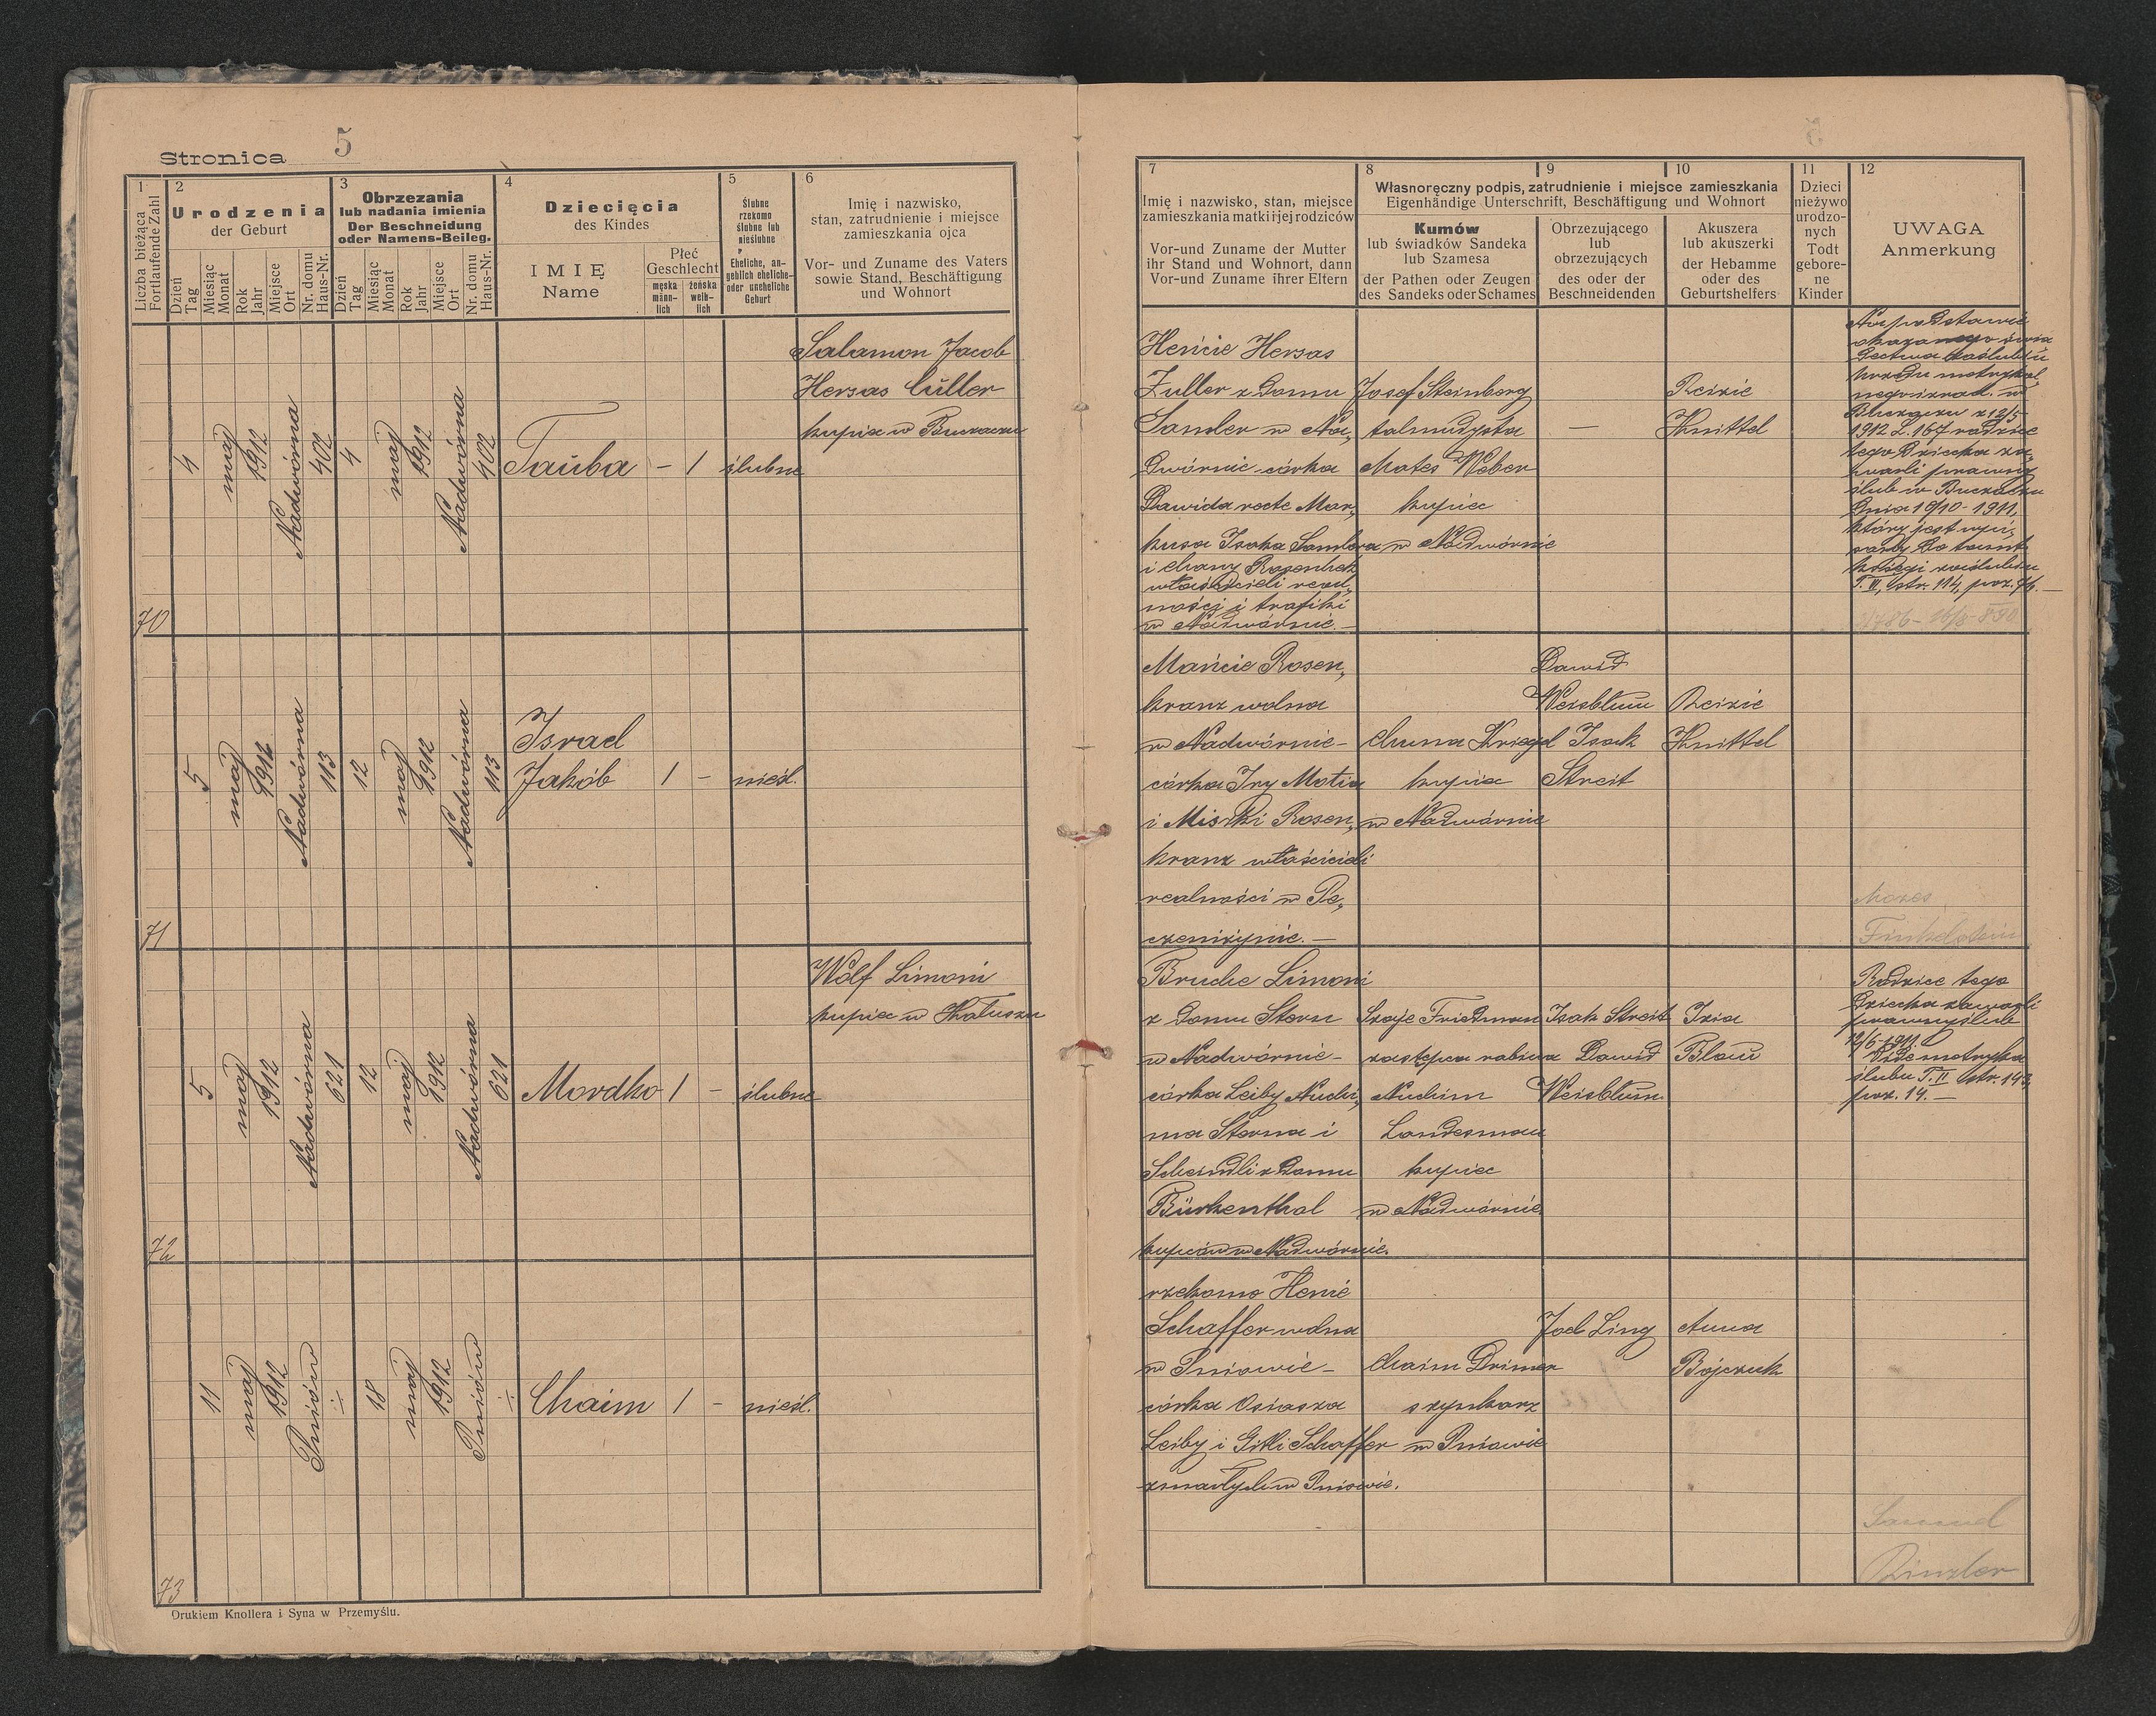 Stronica 5
1
Liczba bieżąca
Fortlaufende Zahl
2
Urodzenia
der Geburt
Dzień
Tag
Miesiąc
Monat
Rok
Jahr
Miejsce
Ort
Nr. domu
Haus-Nr.
3
Obrzezania
lub nadania imienia
Der Beschneidung
oder Namens-Beileg.
Dzień
Tag
Miesiąc
Monat
Rok
Jahr
Miejsce
Ort
Nr. domu
Haus-Nr.
4
Dziecięcia
des Kindes
IMIĘ
Name
Płeć
Geschlecht
męska
männ-
lich
żeńska
weib-
lich
5
Ślubne
rzekomo
ślubne lub
nieślubne
Eheliche, an-
geblich eheliche-
oder uneheliche
Geburt
6
Imię i nazwisko,
stan, zatrudnienie i miejsce
zamieszkania ojca
Vor- und Zuname des Vaters
sowie Stand, Beschäftigung
und Wohnort
7
Imię i nazwisko, stan, miejsce
zamieszkania matki i jej rodziców
Vor-und Zuname der Mutter
ihr Stand und Wohnort, dann
Vor-und Zuname ihrer Eltern
Własnoręczny podpis, zatrudnienie i miejsce zamieszkania
Eigenhändige Unterschrift, Beschäftigung und Wohnort
8
Kumów
lub świadków Sandeka
lub Szamesa
der Pathen oder Zeugen
des Sandeks oder Schames
9
Obrzezującego
lub
obrzezujących
des oder der
Beschneidenden
10
Akuszera
lub akuszerki
der Hebamme
oder des
Geburtshelfers
11
Dzieci
nieżywo
urodzo-
nych
Todt
gebore-
ne
Kinder
12
UWAGA
Anmerkung
70
4
maj
1912
Nadwórna
402
4
maj
1912
Nadwórna
402
Tauba - 1 ślubne
Salamon Jacob
Hersas Culler
kupiec w Buczaczu
Heńcie Hersas
Zuller z domu
Sandler w Na„
dwórnie - córka
Dawida recte Mar„
kusa Isaka Sandlera
i Chany Rosenheck
właścicieli real„
ności i trafiki
w Nadwórnie. -
Josef Steinberg
talmudysta
Mates Weber
kupiec
w Nadwórnie
—
Reizie
Knittel
Na podstawie
okazanego świa
dectwa zaślubin
urzędu metrykal„
nego izrael. w
Buczaczu z 12/5
1912 L. 167 rodzice
tego dziecka za„
warli prawny
ślub w Buczaczu
dnia 19/10 - 1911,
który jest wpi„
sany do tamt.
księgi zaślubin
T. III, str. 114, poz. 76. -
71
5
maj
1912
Nadwórna
113
12
maj
1912
Nadwórna
113
Israel
Jakób 1 - nieśl.
Mańcie Rosen„
kranz wolna
w Nadwórnie -
córka Iry Motia
i Miśki Rosen„
kranz właścicieli
realności w Pe„
czeniżynie. -
Chuna Kriegel
kupiec
w Nadwórnie
Dawid
Weisblum
Isak
Streit
Reizie
Knittel
Mozes
Finkelstein
72
5
maj
1912
Nadwórna
621
12
maj
1912
Nadwórna
621
Mordko 1 - ślubne
Wolf Simoni
kupiec w Kałuszu
Bruche Simoni
z domu Stern
w Nadwórnie -
córka Leiby Nuchi„
ma Sterna i
Scheindli z domu
Bürkenthal
kupców w Nadwórnie.
Szaje Friedman
zastępca rabina
Nuchim
Landesmann
kupiec
w Nadwórnie
Isak Streit
Dawid
Weisblum
Izia
Blau
Rodzice tego
dziecka zawarli
prawny ślub
12/6 1911.
Vide metryka
ślubu T. II str. 143,
poz. 14. -
73
11
maj
1912
Pniów
÷
18
maj
1912
Pniów
÷
Chaim 1 - nieśl.
rzekomo Henie
Schaffer wolna
w Pniowie -
córka Osiasza
Leiby i Gitli Schaffer
zmarłych w Pniowie.
Chaim Drimer
szynkarz
w Pniowie
Joel Ling
Anna
Bojczuk
Samuel
Rinzler
Drukiem Knollera i Syna w Przemyślu.